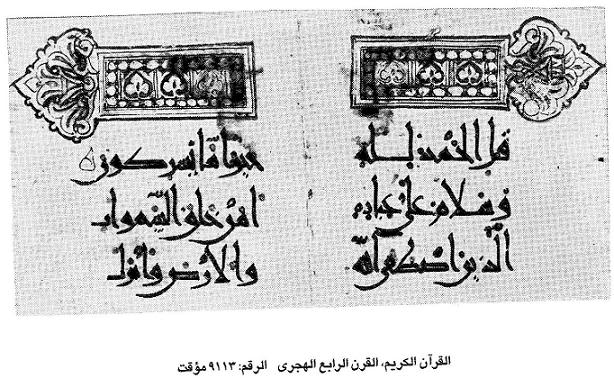 قل الحمد لله
وسلام على عباده
الذين اصطفى الله
خير اما يشركون
امن خلق السموات
والارض وانزل
القرآن الكريم، القرن الرابع الهجرى الرقم: ٩١١٣ مؤقت